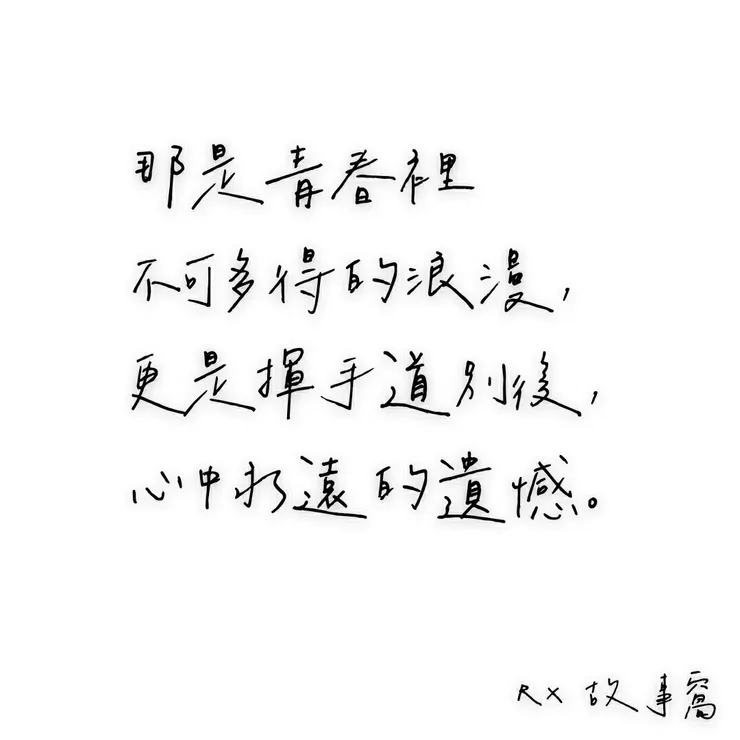 那是青春裡
不可多得的浪漫，
更是揮手道別後，
心中永遠的遺憾。
RX 故事窩